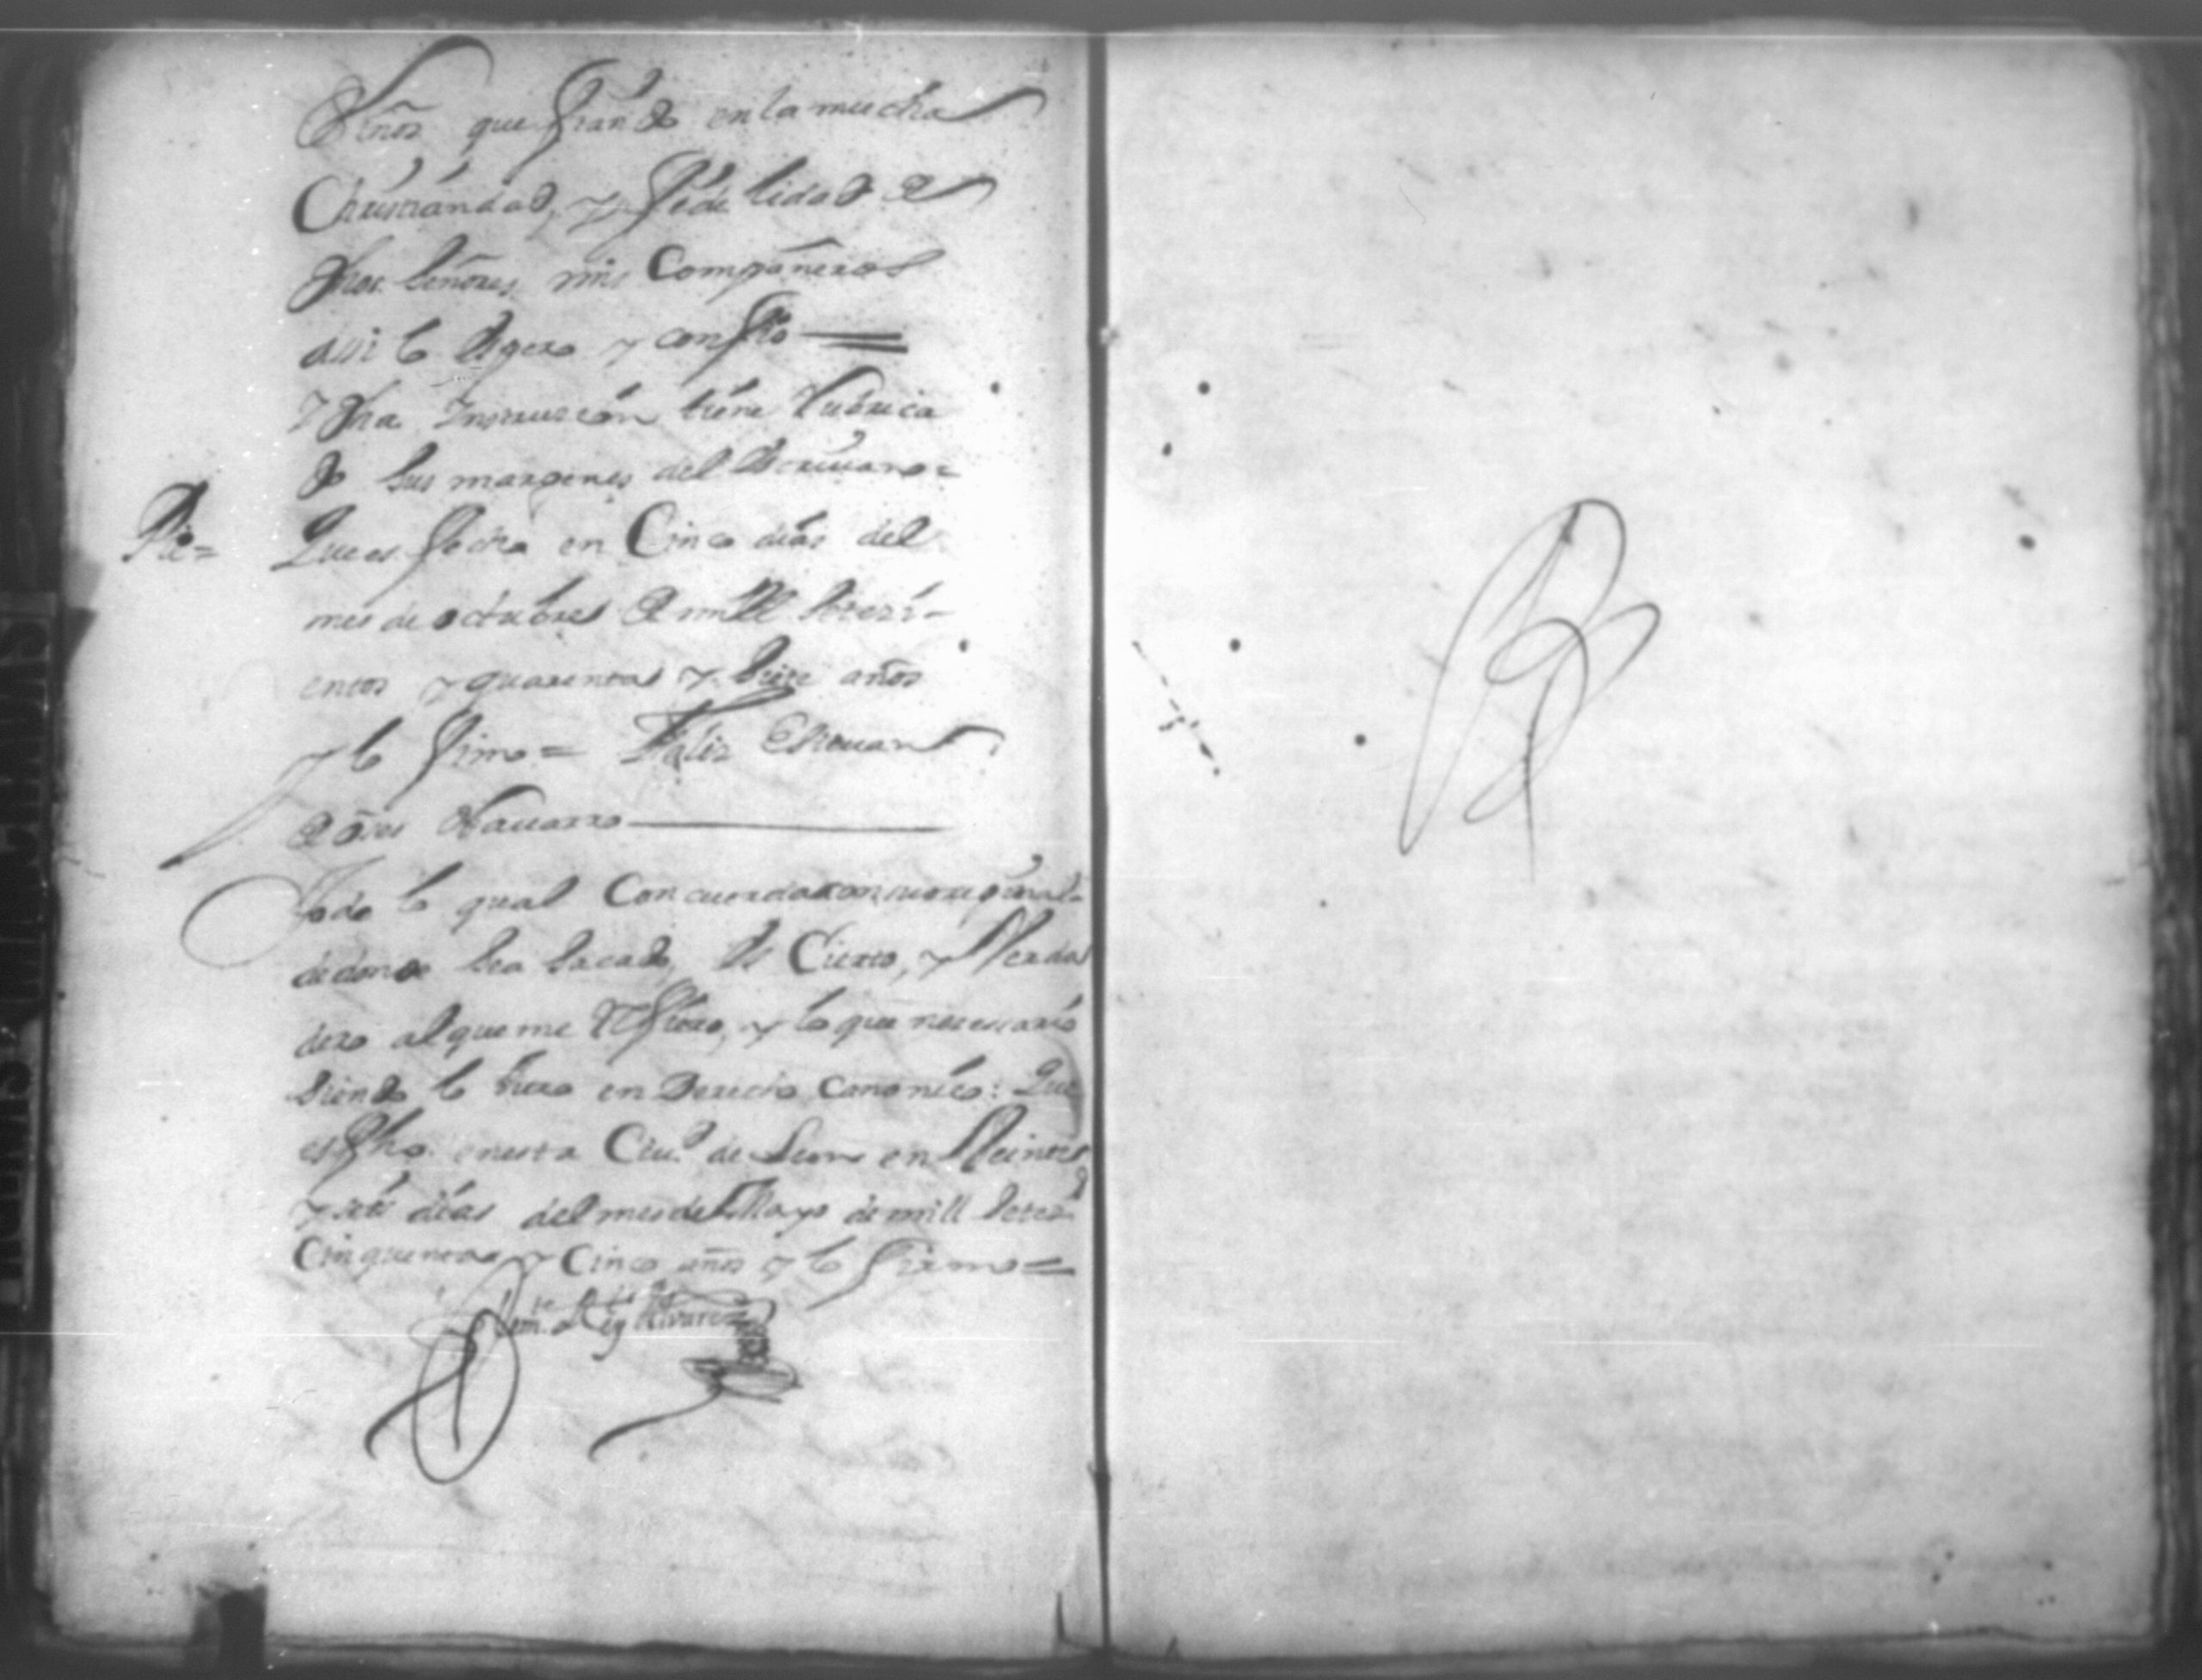 Señor que fiando en la mucha
Christiandad, y fidelidad de
dhos. Señores mis Compañeros
assi lo espero y confio =
Y dha Instrucion tiene rubrica
de sus margenes del escriuano =
Pie = Que es fecha en Cinco dias del
mes de octubre de mill seteci-
entos y quarenta y siete años
y lo firmo = Feliz Esteuan
Navarro
Todo lo qual Concuerda con su original
de donde sea sacado, es Cierto, y Verda
dero al que me refiero, y lo que necessario
siendo lo juro en Derecho Canonico: Que
es fho. en esta Ciud. de Leon en Veinte
y seis dias del mes de Mayo de mill setez.
Cinquenta y Cinco años y lo firmo =
Alvarez